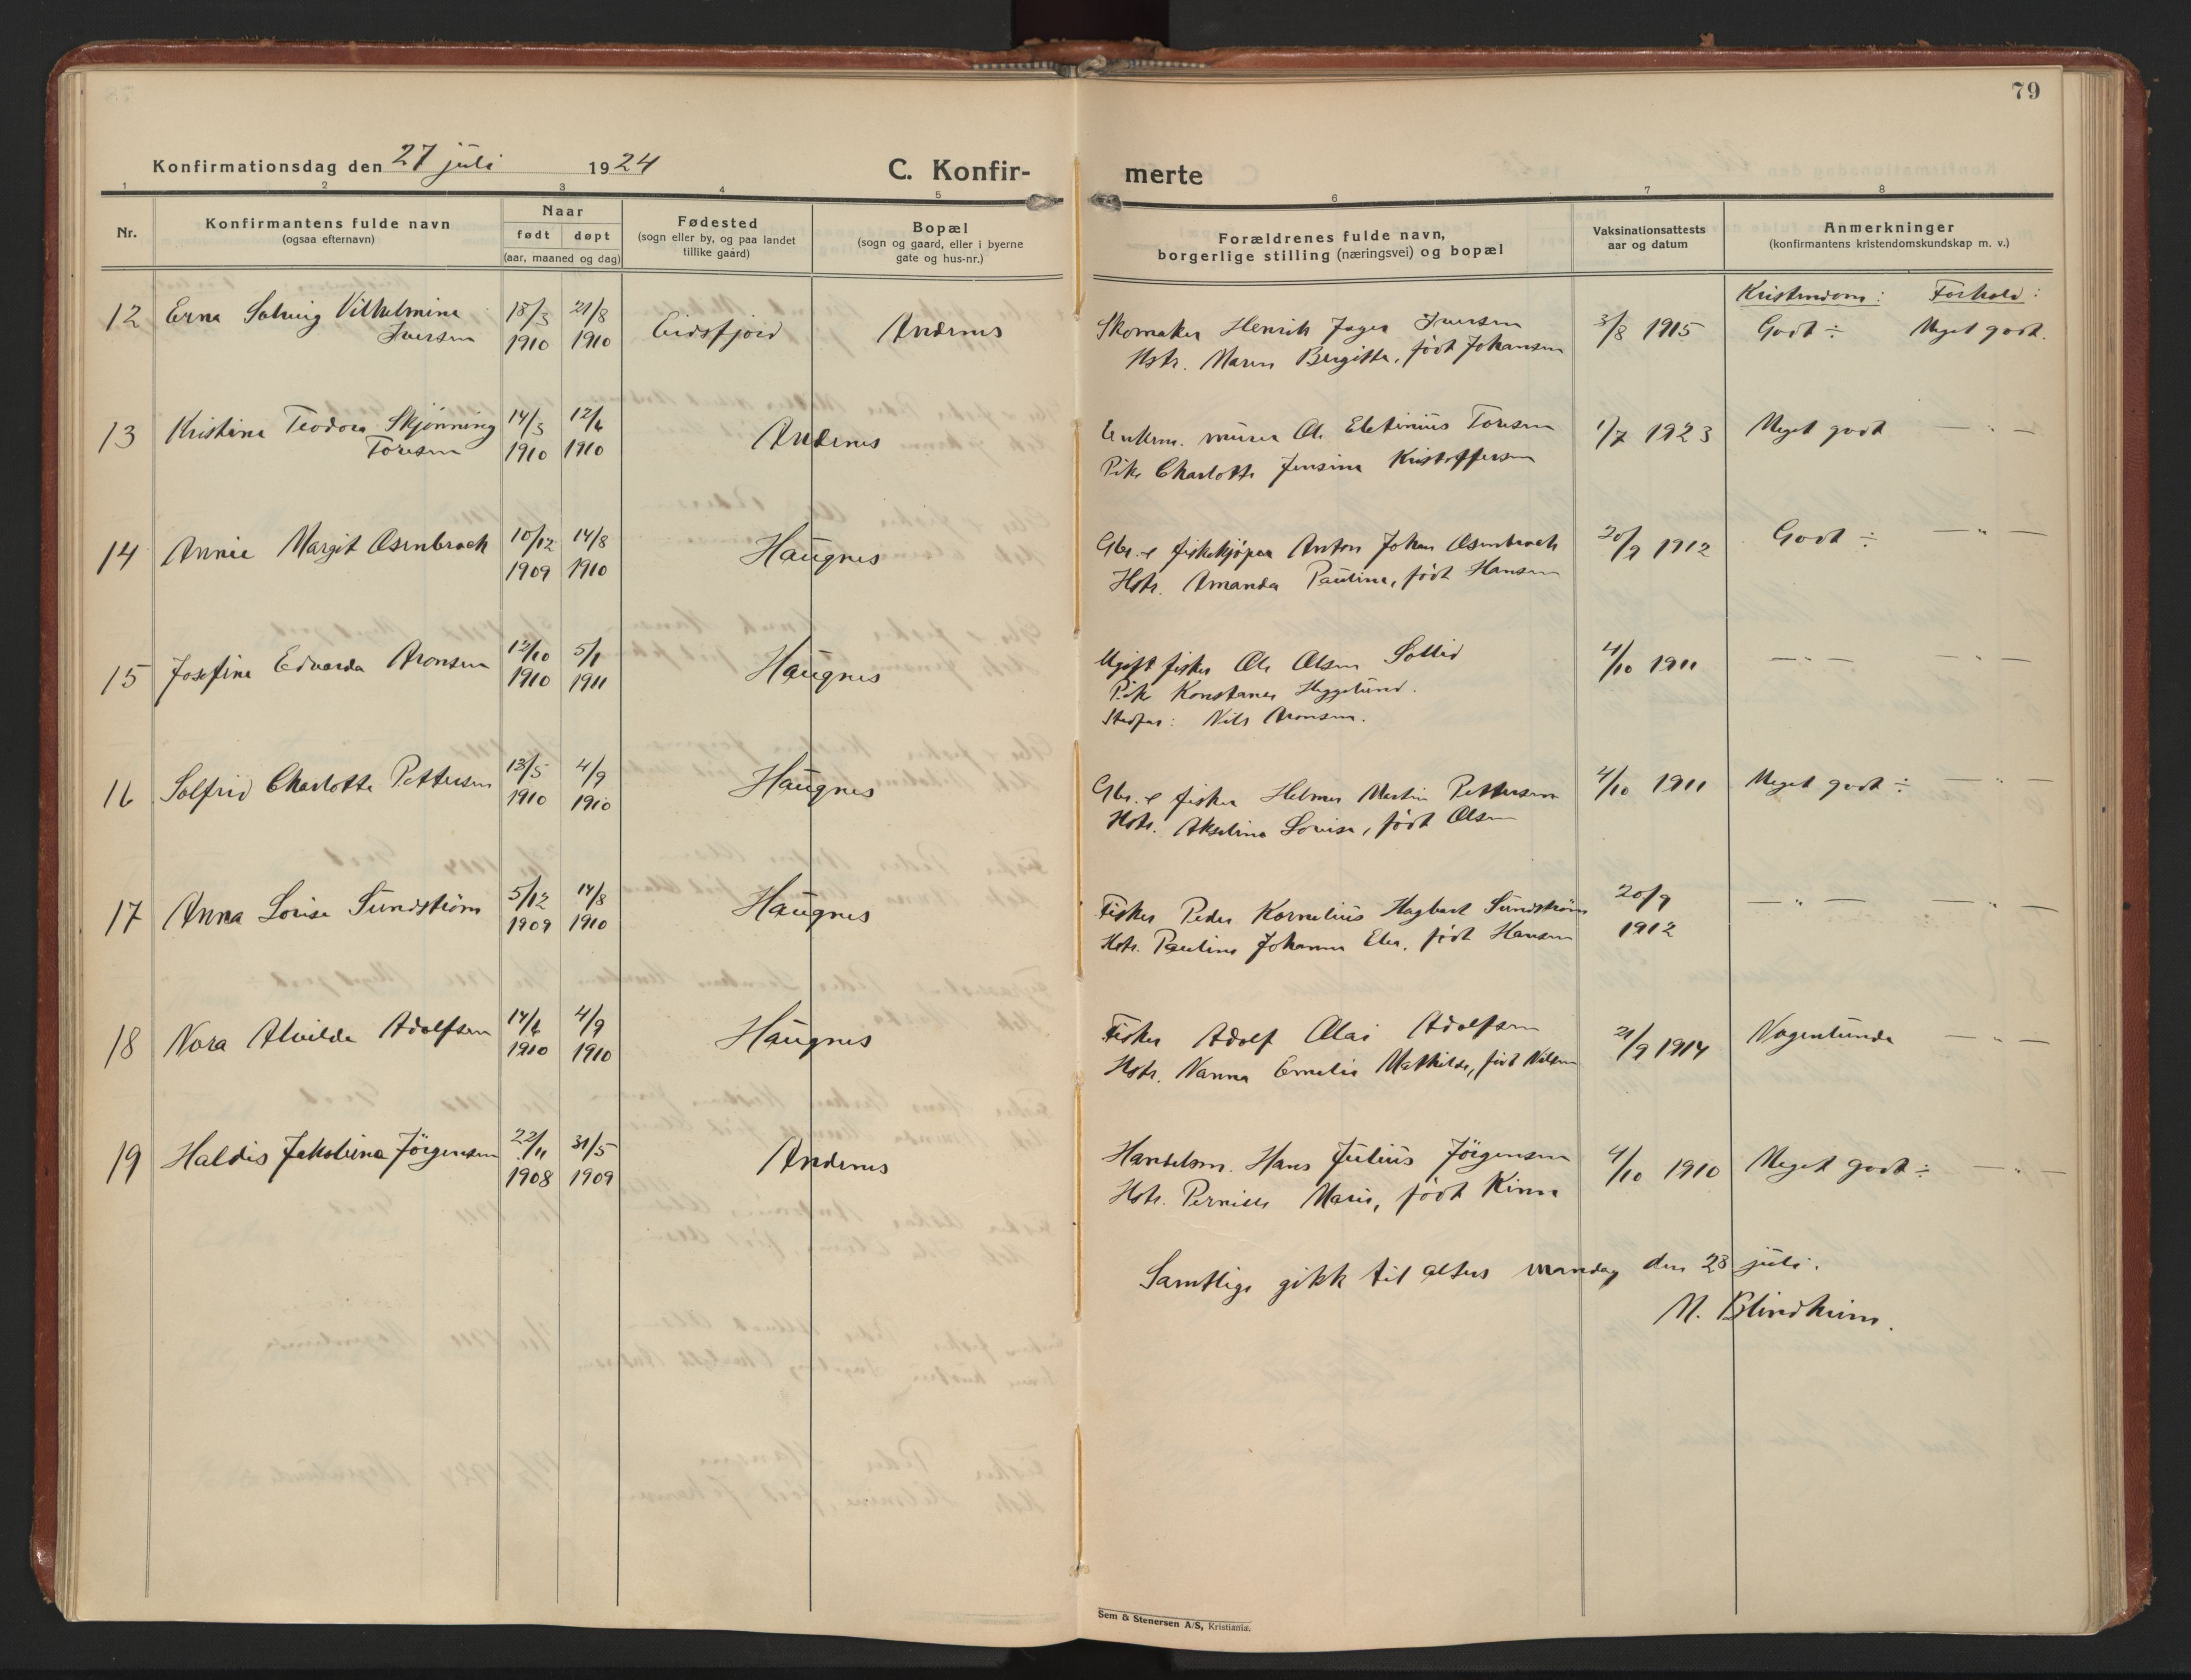 79
Konfirmationsdag den 27 juli 1924
C. Konfir-
merte
1 2 3 4 5 6 7 8
Nr.
Konfirmantens fulde navn
(ogsaa efternavn)
Naar
født døpt
(aar, maaned og dag)
Fødested
(sogn eller by, og paa landet
tillike gaard)
Bopæl
(sogn og gaard, eller i byerne
gate og hus-nr.)
Forældrenes fulde navn,
borgerlige stilling (næringsvei) og bopæl
Vaksinationsattests
aar og datum
Anmerkninger
(konfirmantens kristendomskundskap m. v.)
Kristendom: Forhold:
12 Erna Solveig Vilhelmine 18/3 21/8 Eidsfjord Andenes Skomaker Henrik Jager Iversen 3/8 1915 Godt ÷ Meget godt.
Iversen 1910 1910 Hstr. Maren Bergitte, født Johansen
13 Kristine Teodora Skjønning 14/3 12/6 Andenes murer Ole Toresen 1/7 1923 Meget godt — " —
Toresen 1910 1910 Pike Charlotte Jensine Kristoffersen
14 Annie Margit Osenbroch 10/12 14/8 Haugnes Gbr. & fiskekjøper Anton Johan Osenbroch 20/9 1912 Godt ÷ — " —
1909 1910 Hstr. Amanda Pauline, født Hansen
15 Josefine Edvarda Aronsen 12/10 5/1 Haugnes Ugift fisker Ole Olsen Sollid 4/10 1911 — " — — " —
1910 1911 Pike Konstance Heggelund.
Stedfar: Nils Aronsen.
16 Solfrid Charlotte Pettersen 13/5 4/9 Haugnes Gbr. & fisker Helmer Martin Pettersen 4/10 1911 Meget godt ÷ — " —
1910 1910 Hstr. Akseline Lovise, født Olsen
17 Anna Lovise Sundstrøm 5/12 14/8 Haugnes Fisker Peder Kornelius Hagbart Sundstrøm 20/9 — " — — " —
1909 1910 Hstr. Pauline Johanna født Hansen 1912
18 Nora Alvilde Adolfsen 14/6 4/9 Haugnes Fisker Adolf Olai Adolfsen 21/9 1914 Nogenlunde — " —
1910 1910 Hstr. Nanna Emelie Mathilde, født Nilsen
19 Haldis Jakobine Jørgensen 22/11 31/5 Andenes Handelsm. Hans Julius Jørgensen 4/10 1910 Meget godt ÷ — " —
1908 1909 Hstr. Pernille Marie, født Kinn
Samtlige gikk til alters mandag den 28 juli.
M. Blindheim.
Sem & Stenersen A/S, Kristiania.